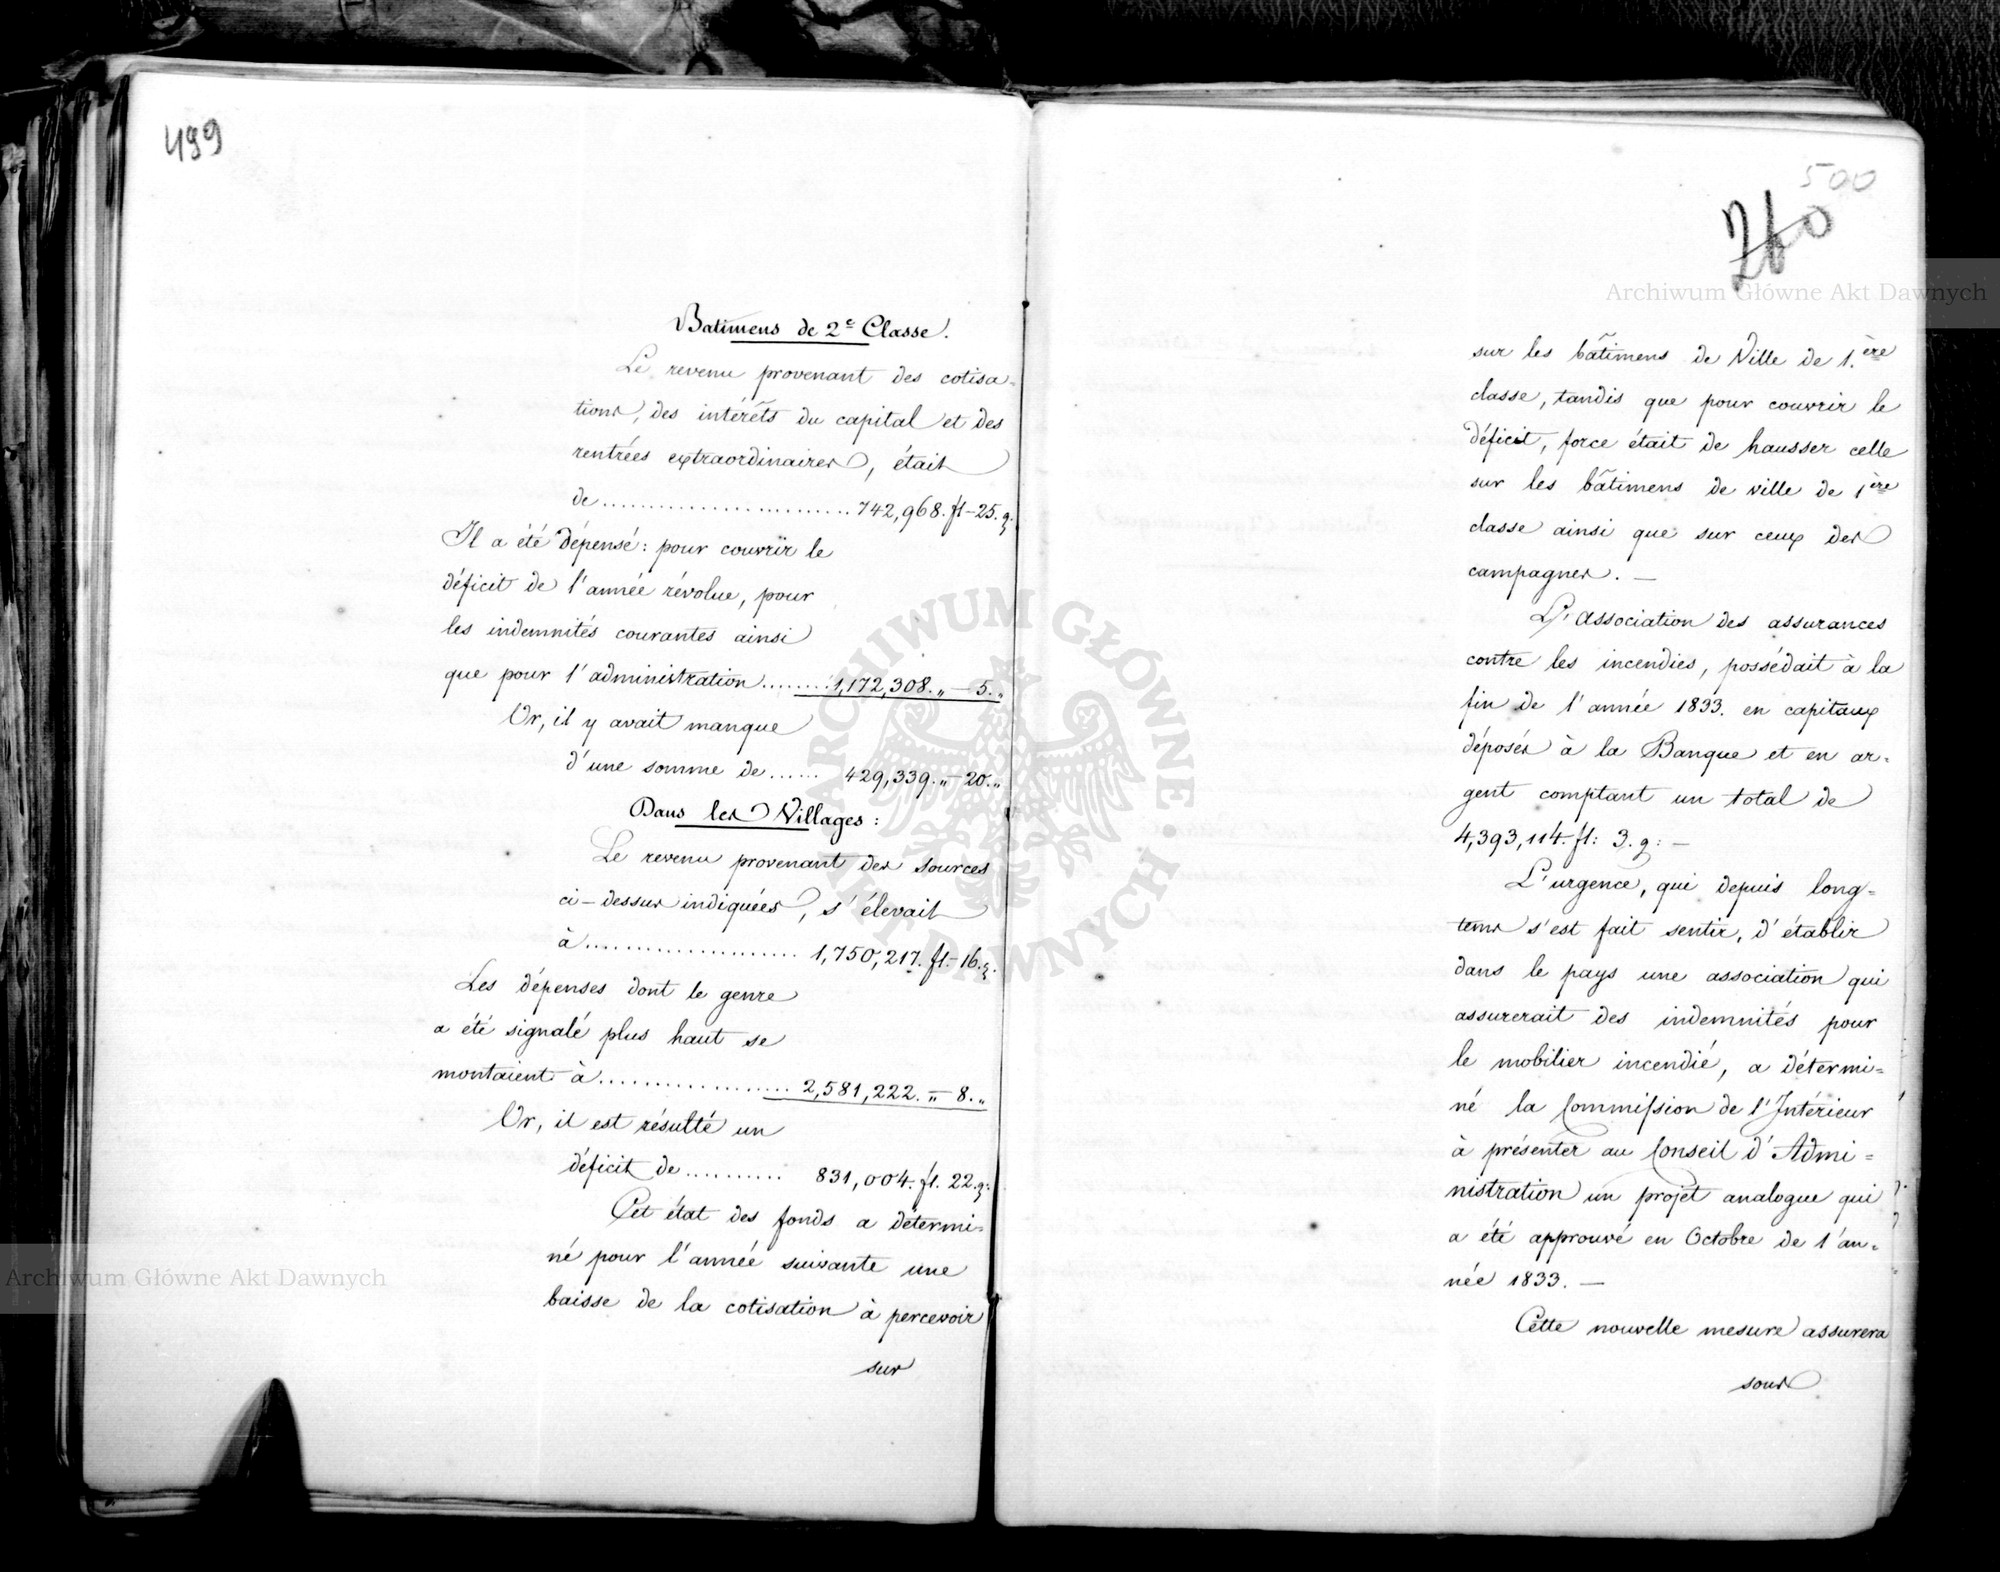 499
Batimens de 2e Classe.
Le revenu provenant des cotisa=
tions, des intérêts du capital et des
rentrées extraordinaires, était
de .......................... 742,968. fl - 25. g.
Il a été dépensé: pour couvrir le
déficit de l'année révolue, pour
les indemnités courantes ainsi
que pour l'administration ........ 1,172,308. „ - 5. „
Or, il y avait manque
d'une somme de ...... 429,339. „ - 20. „
Dans les Villages:
Le revenu provenant des sources
ci-dessus indiquées, s'élevait
à ...................... 1,750,217. fl. - 16. g.
Les dépenses dont le genre
a été signalé plus haut se
montaient à ................... 2,581,222. „ - 8. „
Or, il est résulté un
déficit de .......... 831,004. fl. 22. g.
Cet état des fonds a détermi=
né pour l'année suivante une
baisse de la cotisation à percevoir
sur
500
260
sur les bâtimens de Ville de 1.ère
classe, tandis que pour couvrir le
déficit, force était de hausser celle
sur les bâtimens de ville de 1ère
classe ainsi que sur ceux des
campagnes. —
L'Association des assurances
contre les incendies, possédait à la
fin de l'année 1833. en capitaux
déposés à la Banque et en ar=
gent comptant un total de
4,393,114. fl: 3. g: —
L'urgence, qui depuis long=
tems s'est fait sentir, d'établir
dans le pays une association qui
assurerait des indemnités pour
le mobilier incendié, a détermi=
né la Commission de l'Intérieur
à présenter au Conseil d'Admi=
nistration un projet analogue qui
a été approuvé en Octobre de l'an=
née 1833. —
Cette nouvelle mesure assurera
sous
Archiwum Główne Akt Dawnych
Archiwum Główne Akt Dawnych
ARCHIWUM GŁÓWNE AKT DAWNYCH